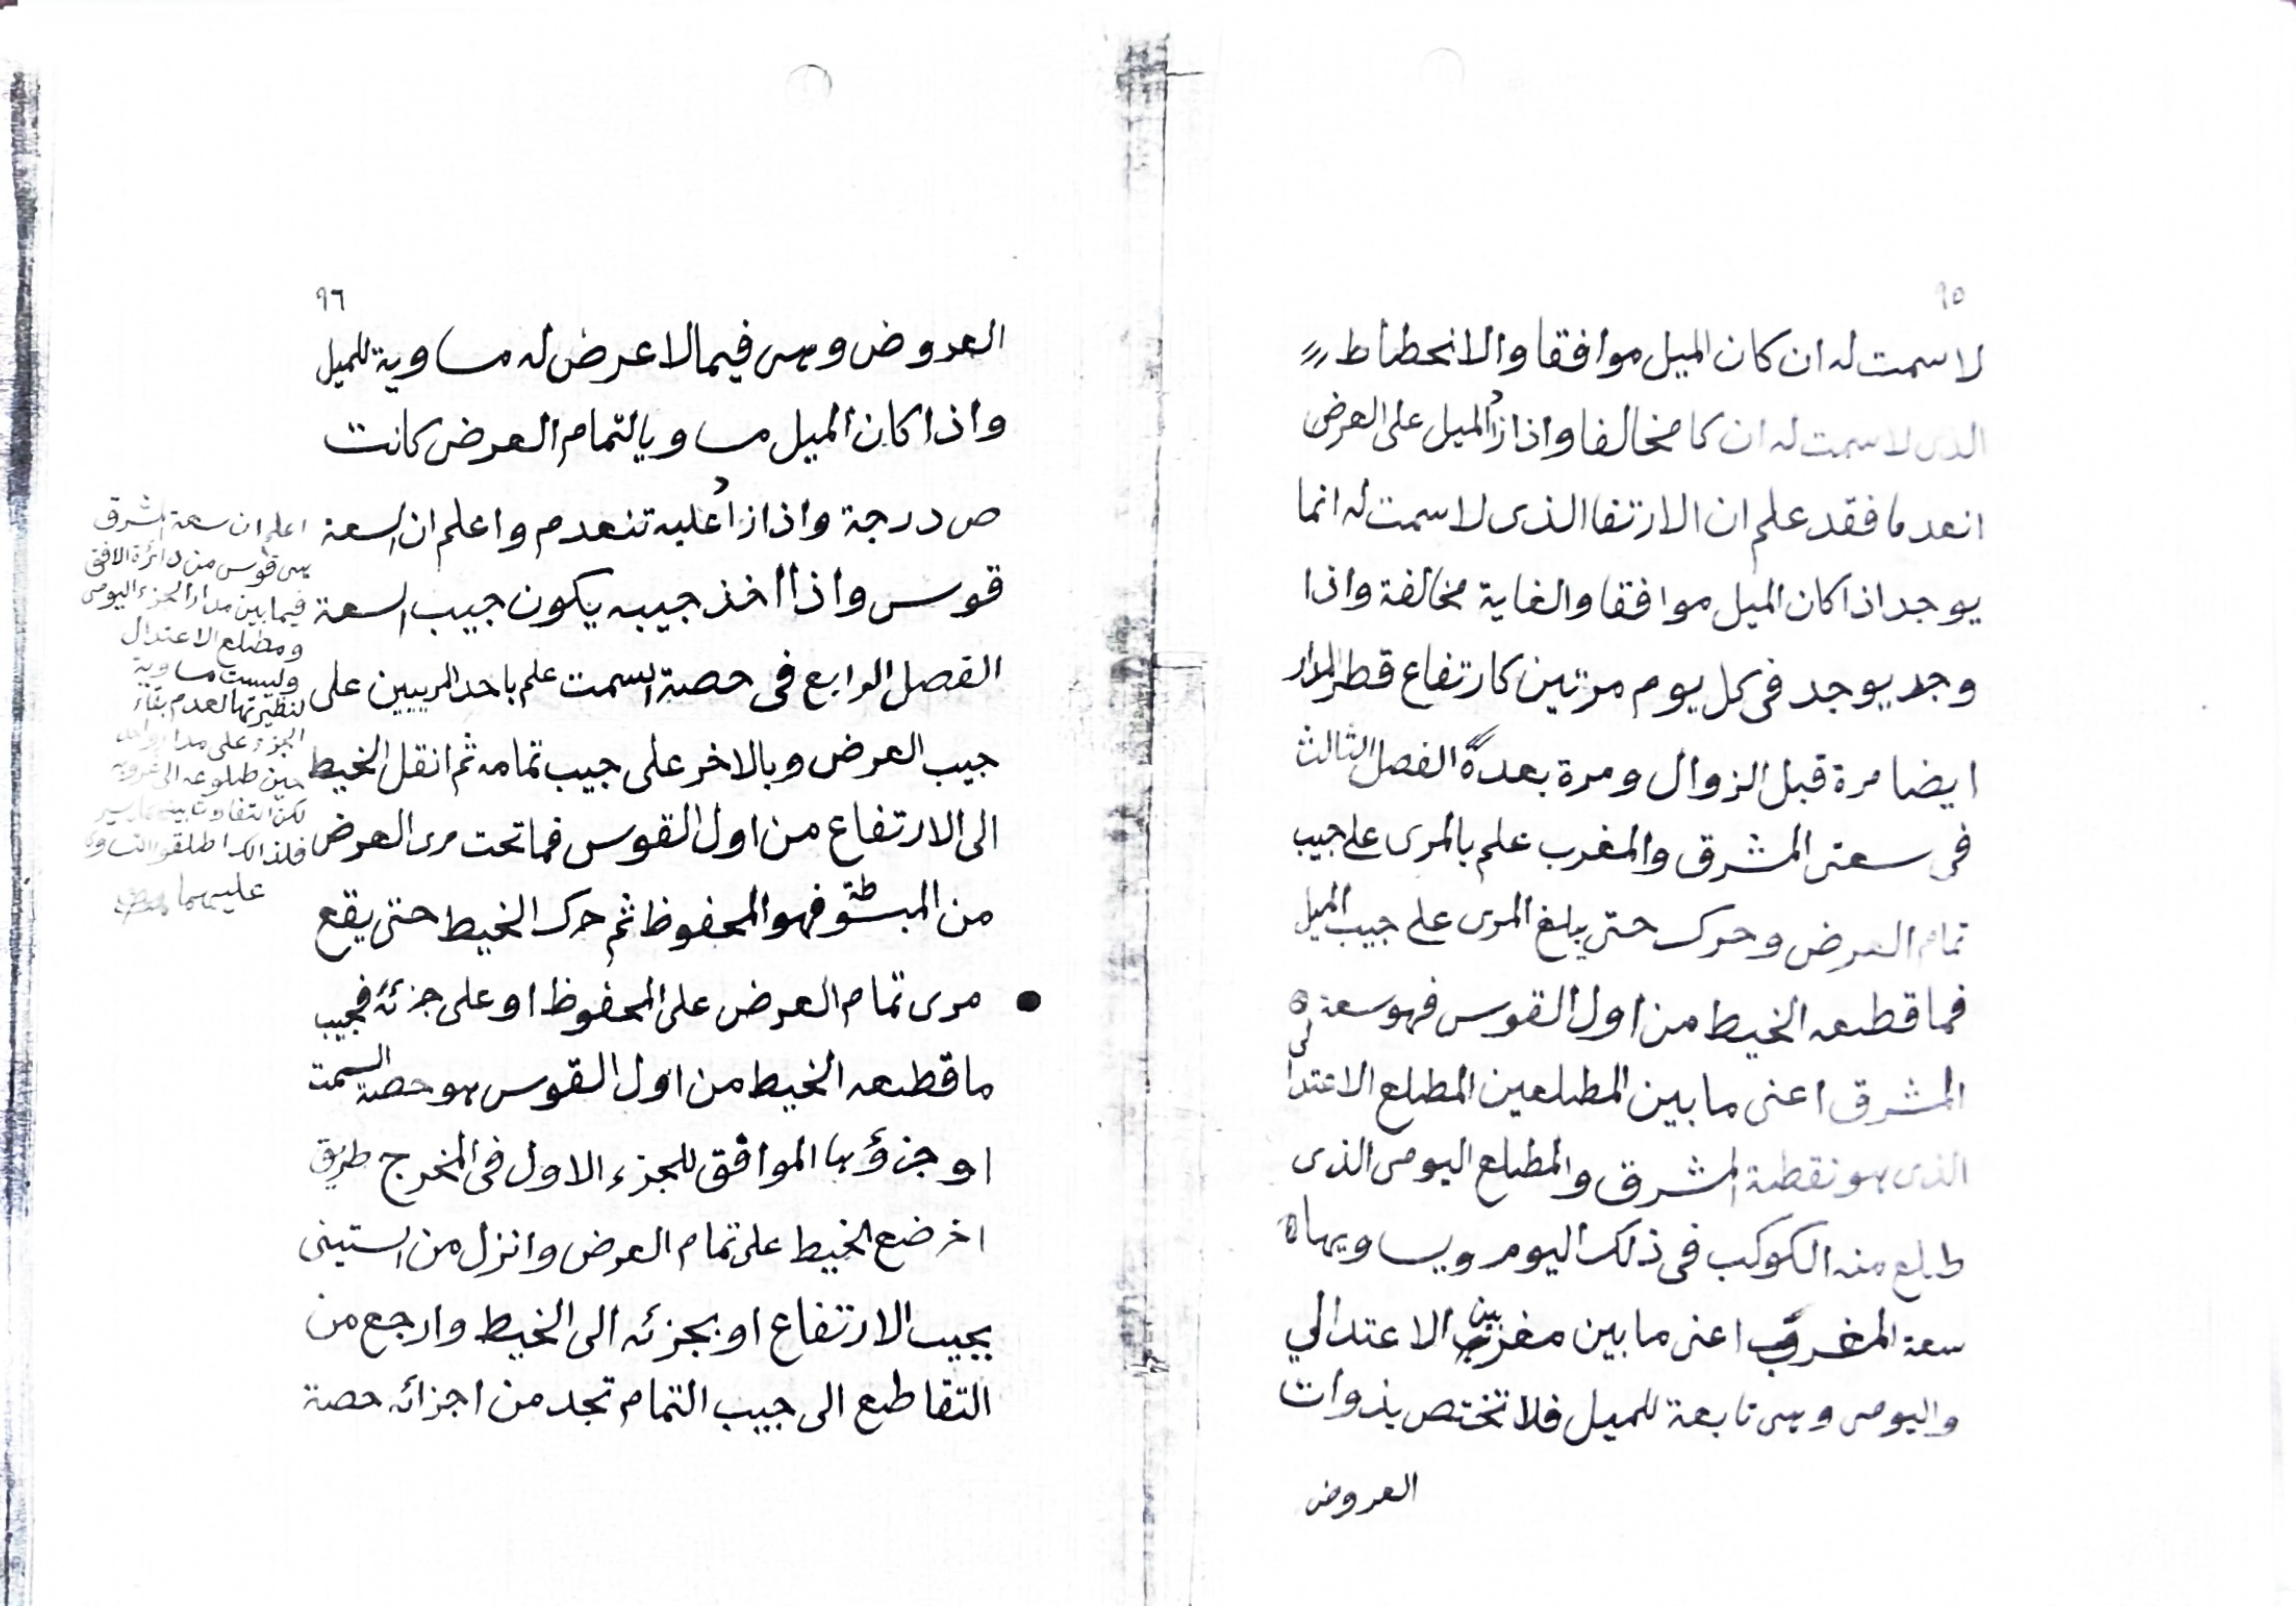 ٩٥
لا سمت له ان كان الميل موافقا والانحطاط
الذى لا سمت له ان كا مخالفا واذا زاد الميل على العرض
انعدما فقد علم ان الارتفا الذى لا سمت له انما
يوجد اذا كان الميل موافقا والغاية مخالفة واذا
وجد يوجد فى كل يوم مرتين كارتفاع قطر المدار
ايضا مرة قبل الزوال ومرة بعده الفصل الثالث
فى سعتى المشرق والمغرب علم بالمرى على جيب
تمام العرض وحرك حتى يبلغ المرى على جيب الميل
فما قطعه الخيط من اول القوس فهو سعة
المشرق اعنى ما بين المطلعين المطلع الاعتدالى
الذى هو نقطة المشرق والمطلع اليومى الذى
طلع منه الكوكب فى ذلك اليوم ويساويها
سعة المغرب اعنى ما بين مغربين الاعتدالي
واليومى وهى تابعة للميل فلا تختص بذوات
العروض
٩٦
العروض وهى فيما لا عرض له مساوية للميل
واذا كان الميل مساويا لتمام العرض كانت
ص درجة واذا زاد عليه تنعدم واعلم ان السعة
قوس واذا اخذ جيبه يكون جيب السعة
الفصل الرابع فى حصة السمت علم باحد المريين على
جيب العرض وبالاخر على جيب تمامه ثم انقل الخيط
الى الارتفاع من اول القوس فما تحت مرى العرض
من المبسوطة فهو المحفوظ ثم حرك الخيط حتى يقع
مرى تمام العرض على المحفوظ او على جزئه فجيب
ما قطعه الخيط من اول القوس هو حصة السمت
او جزؤها الموافق للجزء الاول فى المخرج طريق
اخر ضع الخيط على تمام العرض وانزل من الستينى
بجيب الارتفاع او بجزئه الى الخيط وارجع من
التقاطع الى جيب التمام تجد من اجزائه حصة
اعلم ان سعة المشرق
هى قوس من دائرة الافق
فيما بين مدار الجزء اليومى
ومطلع الاعتدال
وليست مساوية
لنظيرتها لعدم بقاء
الجزء على مدار واحد
حين طلوعه الى غروبه
لكن التفاوت بينهما يسير
فلذالك اطلقوا التساوى
عليهما